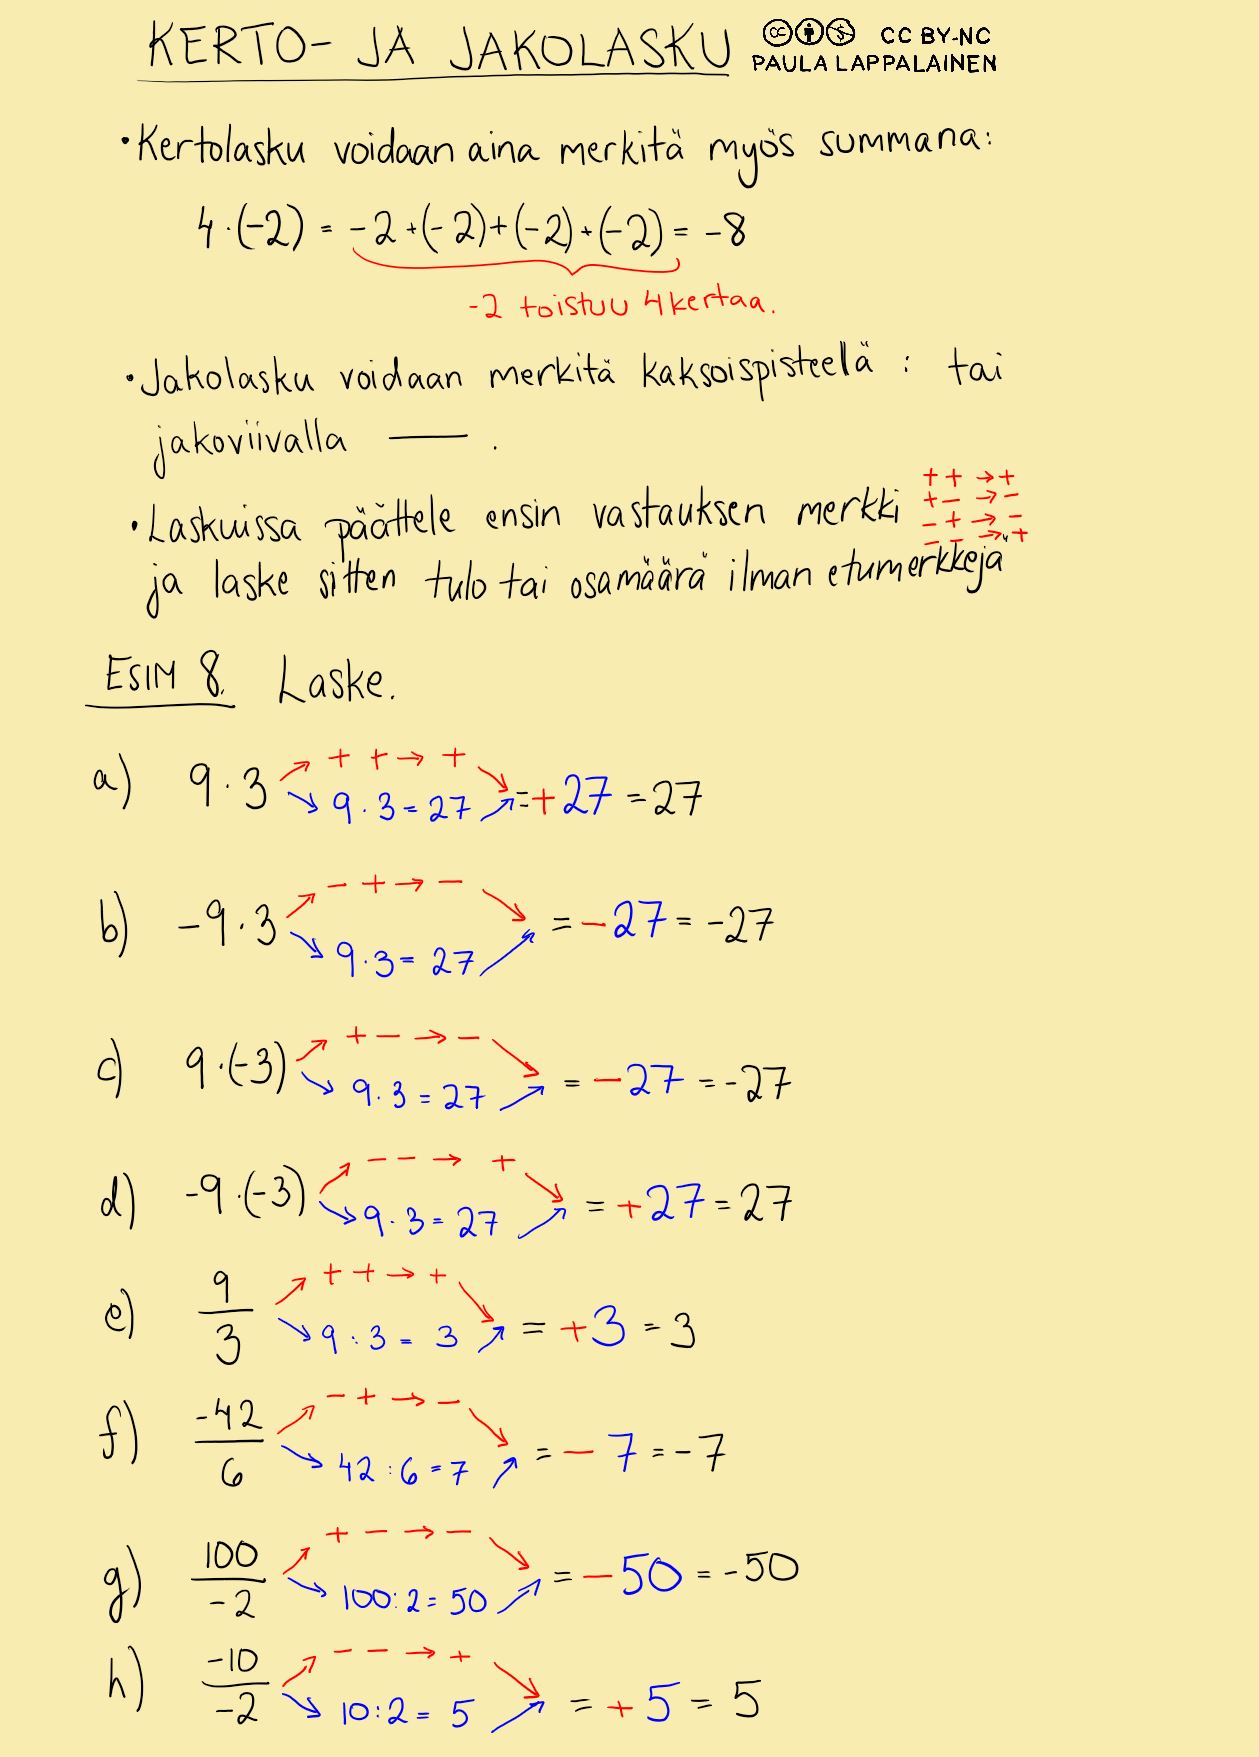 KERTO- JA JAKOLASKU
CC BY-NC
PAULA LAPPALAINEN
• Kertolasku voidaan aina merkitä myös summana:
4 · (-2) = -2 + (-2) + (-2) + (-2) = -8
-2 toistuu 4 kertaa.
• Jakolasku voidaan merkitä kaksoispisteelä : tai
jakoviivalla — .
• Laskuissa päättele ensin vastauksen merkki
+ + → +
+ - → -
- + → -
- - → +
ja laske sitten tulo tai osamäärä ilman etumerkkejä
ESIM 8. Laske.
+ + → +
a) 9 · 3 = +27 = 27
9 · 3 = 27
- + → -
b) -9 · 3 = -27 = -27
9 · 3 = 27
+ - → -
c) 9 · (-3) = -27 = -27
9 · 3 = 27
- - → +
d) -9 · (-3) = +27 = 27
9 · 3 = 27
+ + → +
e) 9/3 = +3 = 3
9 : 3 = 3
- + → -
f) -42/6 = -7 = -7
42 : 6 = 7
+ - → -
g) 100/-2 = -50 = -50
100 : 2 = 50
- - → +
h) -10/-2 = +5 = 5
10 : 2 = 5